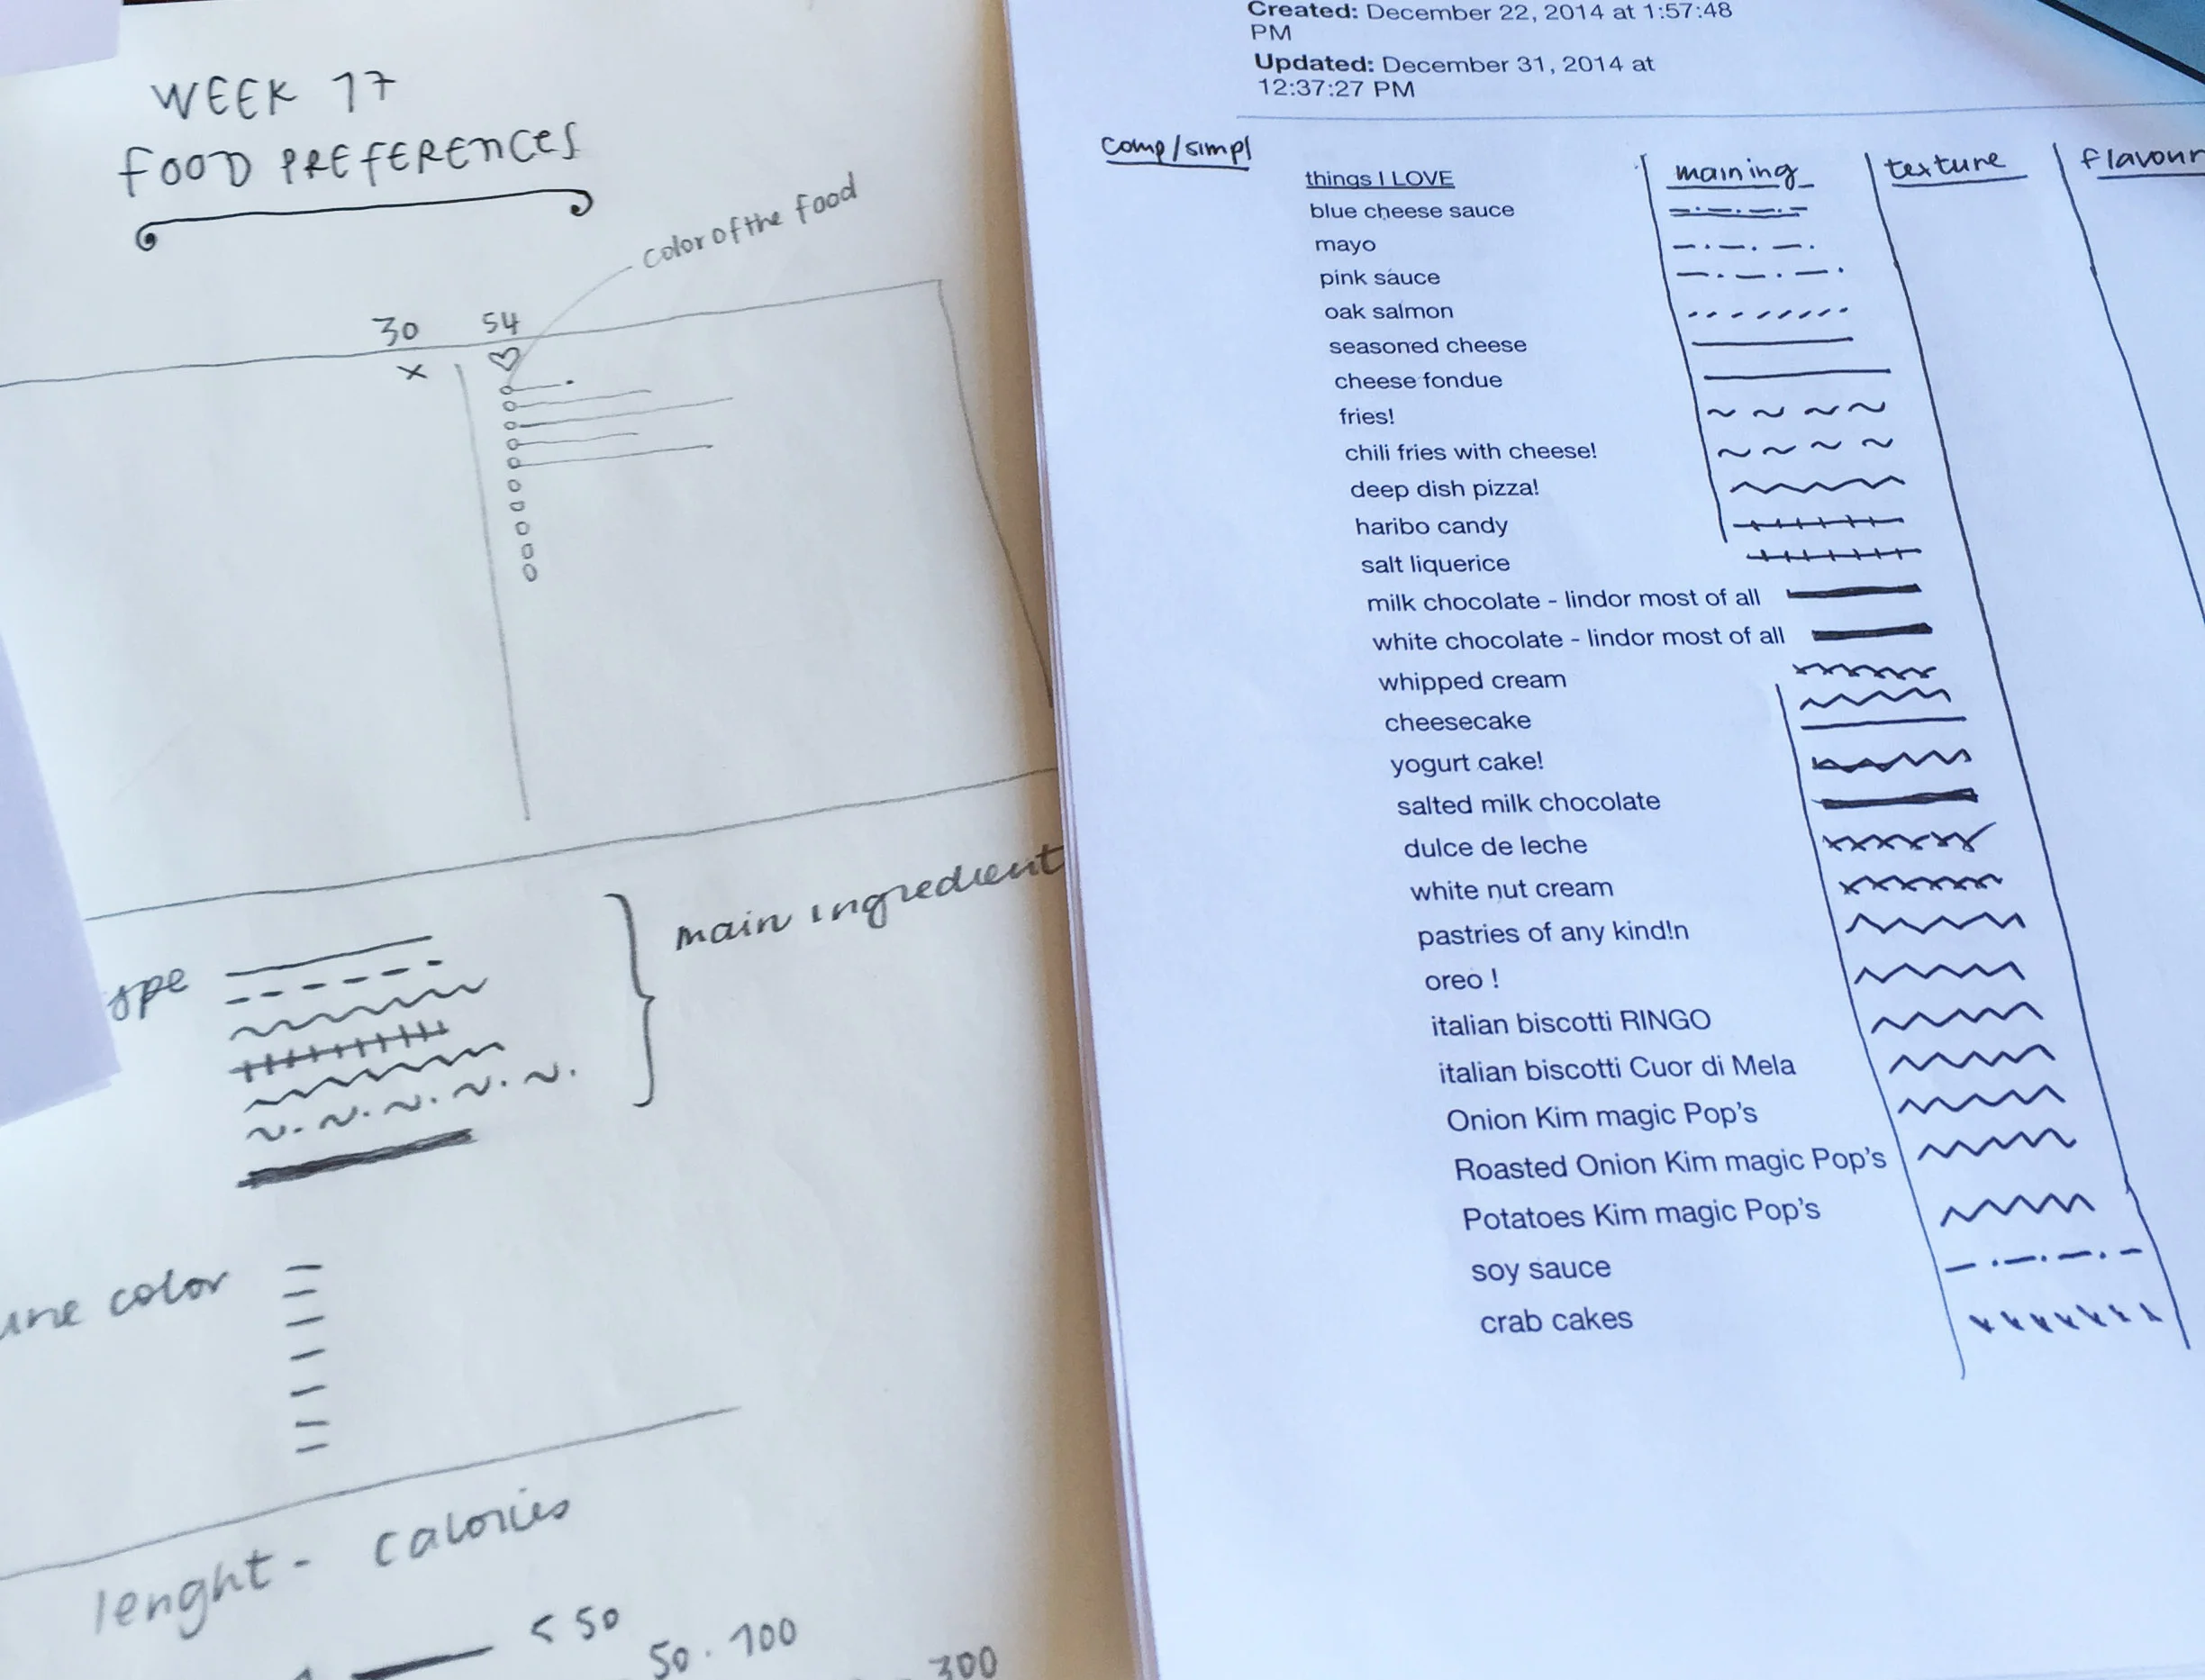 WEEK 17
FOOD PREFERENCES
color of the food
30 54
x
main ingredient
color
lenght - calories
< 50
50 . 100
300
Created: December 22, 2014 at 1:57:48
PM
Updated: December 31, 2014 at
12:37:27 PM
comp/simpl
things I LOVE
maining
texture
flavour
blue cheese sauce
mayo
pink sauce
oak salmon
seasoned cheese
cheese fondue
fries!
chili fries with cheese!
deep dish pizza!
haribo candy
salt liquerice
milk chocolate - lindor most of all
white chocolate - lindor most of all
whipped cream
cheesecake
yogurt cake!
salted milk chocolate
dulce de leche
white nut cream
pastries of any kind!n
oreo !
italian biscotti RINGO
italian biscotti Cuor di Mela
Onion Kim magic Pop's
Roasted Onion Kim magic Pop's
Potatoes Kim magic Pop's
soy sauce
crab cakes